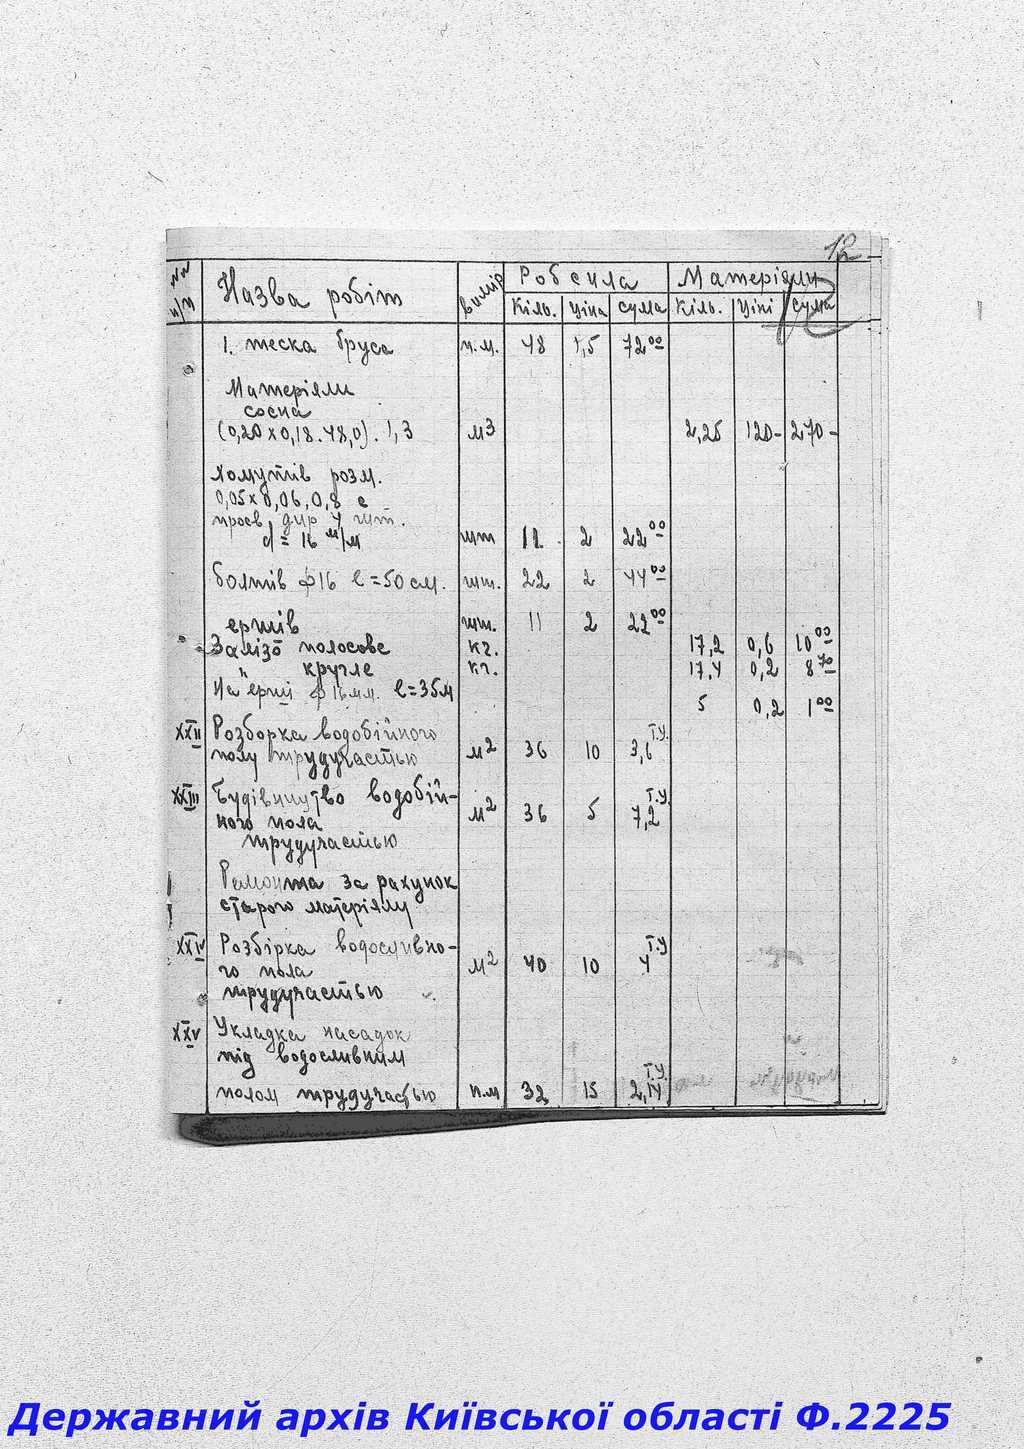 12
№№ п/п Назва робіт вимір Робсила Матеріяли
Кіль. Ціна сума Кіль. Ціні сума
1. теска бруса п.м. 48 1,5 72 00
Матеріяли
сосна
(0,20 х 0,18 . 48,0) . 1,3 м3 2,25 120- 270-
хомутів розм.
0,05 х 0,06, 0,8 с
просв. дир 4 шт.
d = 16 м/м шт 11 2 22 00
болтів ф16 l = 50 см. шт. 22 2 44 00
єршів шт. 11 2 22 00
Залізо полосове кг. 17,2 0,6 10 00
" кругле кг. 17,4 0,2 8 70
На єрші ф 16 мм. l = 35м 5 0,2 1 00
XXII Розборка водобійного
полу трудучастью м2 36 10 3,6 т.у.
XXIII Будівництво водобій-
ного пола м2 36 5 7,2 т.у.
трудучастью
Ремонта за рахунок
старого матеріялу
XXIV Розбірка водосливно-
го пола м2 40 10 4 т.у
трудучастью
XXV Укладка насадок
під водосливним
полом трудучастью п.м 32 15 2,14 т.у.
Державний архів Київської області Ф.2225